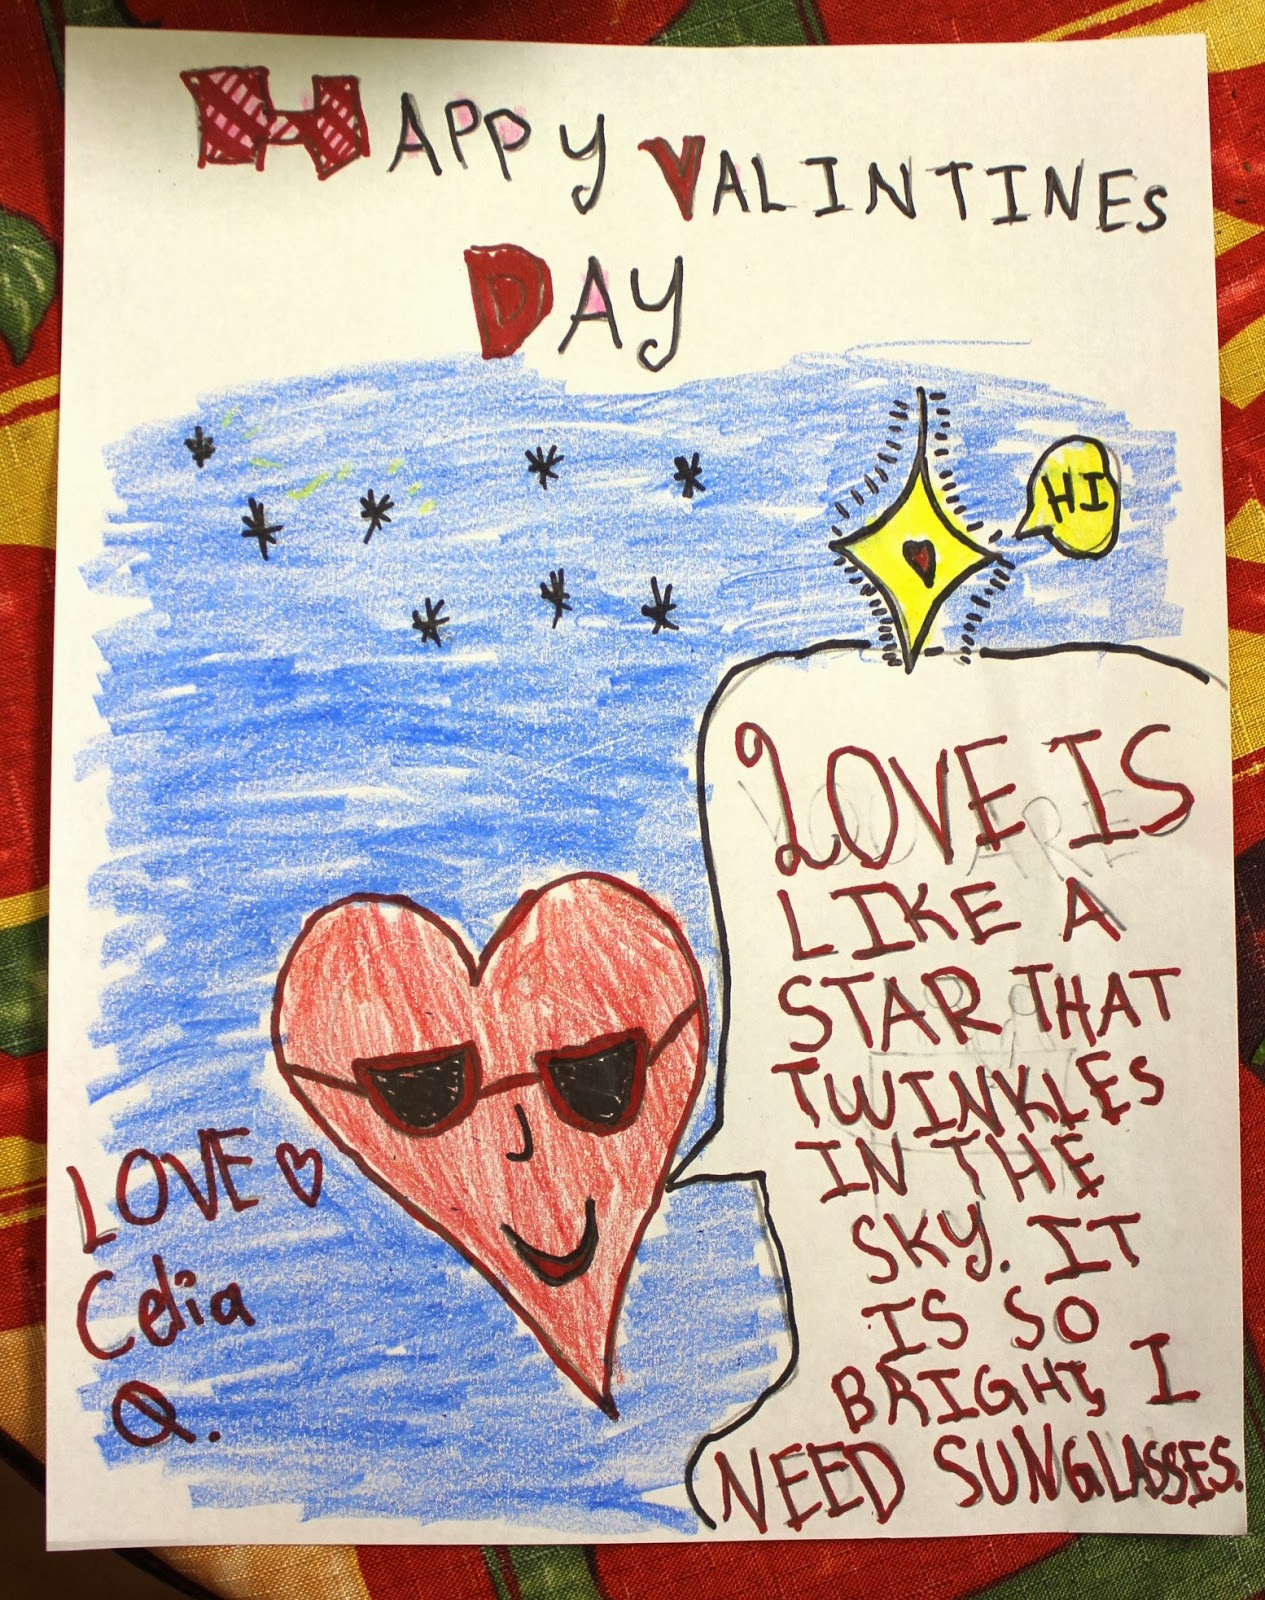 HAPPY VALINTINES
DAY
HI
LOVE IS
LIKE A
STAR THAT
TWINKLES
IN THE
SKY. IT
IS SO
BRIGHT, I
NEED SUNGLASSES.
LOVE
Celia
Q.